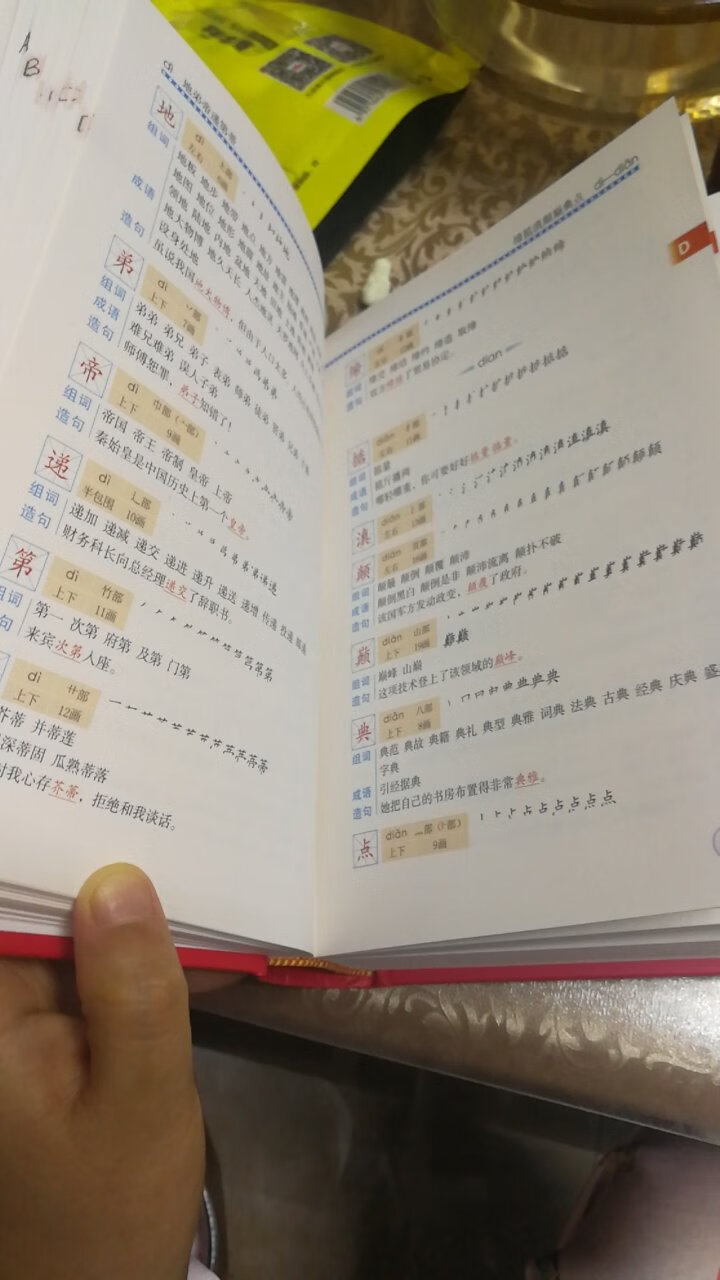 A
B
dì 地弟帝递第蒂
地 dì 土部
左右 6画
组词 地板 地步 地带 地点 地方
地图 地位 地形
领地 陆地 内地 盆地 天地
成语 地大物博 地久天长 人杰地灵
设身处地
造句 虽说我国地大物博，但由于人口太多，
弟 dì 丷部
上下 7画
组词 弟弟 弟兄 弟子 表弟 师弟 徒弟
成语 难兄难弟 误人子弟
造句 师傅恕罪，弟子知错了！
帝 dì 巾部（亠部）
上下 9画
组词 帝国 帝王 帝制 皇帝 上帝
造句 秦始皇是中国历史上第一个皇帝。
递 dì 辶部
半包围 10画
组词 递加 递减 递交 递进 递升 递送 递增 传递 投递
造句 财务科长向总经理递交了辞职书。
第 dì 竹部
上下 11画
组词 第一 次第 府第 及第 门第
来宾次第入座。
dì 艹部
上下 12画
芥蒂 并蒂莲
深蒂固 瓜熟蒂落
对我心存芥蒂，拒绝和我谈话。
缔掂滇颠巅典点 dì—diān
D
缔
组词 缔交 缔结 缔约 缔造 取缔
造句 双方缔结了贸易协定。
diān
掂 diān 扌部
左右 11画
组词 掂量
成语 掂斤播两
造句 哪轻哪重，你可要好好掂量掂量。
滇 diān 氵部
左右 13画
颠 diān 页部
左右 16画
组词 颠簸 颠倒 颠覆 颠沛
成语 颠倒黑白 颠倒是非 颠沛流离 颠扑不破
造句 该国军方发动政变，颠覆了政府。
巅 diān 山部
上下 19画
组词 巅峰 山巅
造句 这项技术登上了该领域的巅峰。
典 diǎn 八部
上下 8画
组词 典范 典故 典籍 典礼 典型 典雅 词典 法典 古典 经典 庆典 盛
字典
成语 引经据典
造句 她把自己的书房布置得非常典雅。
点 diǎn 灬部（卜部）
上下 9画